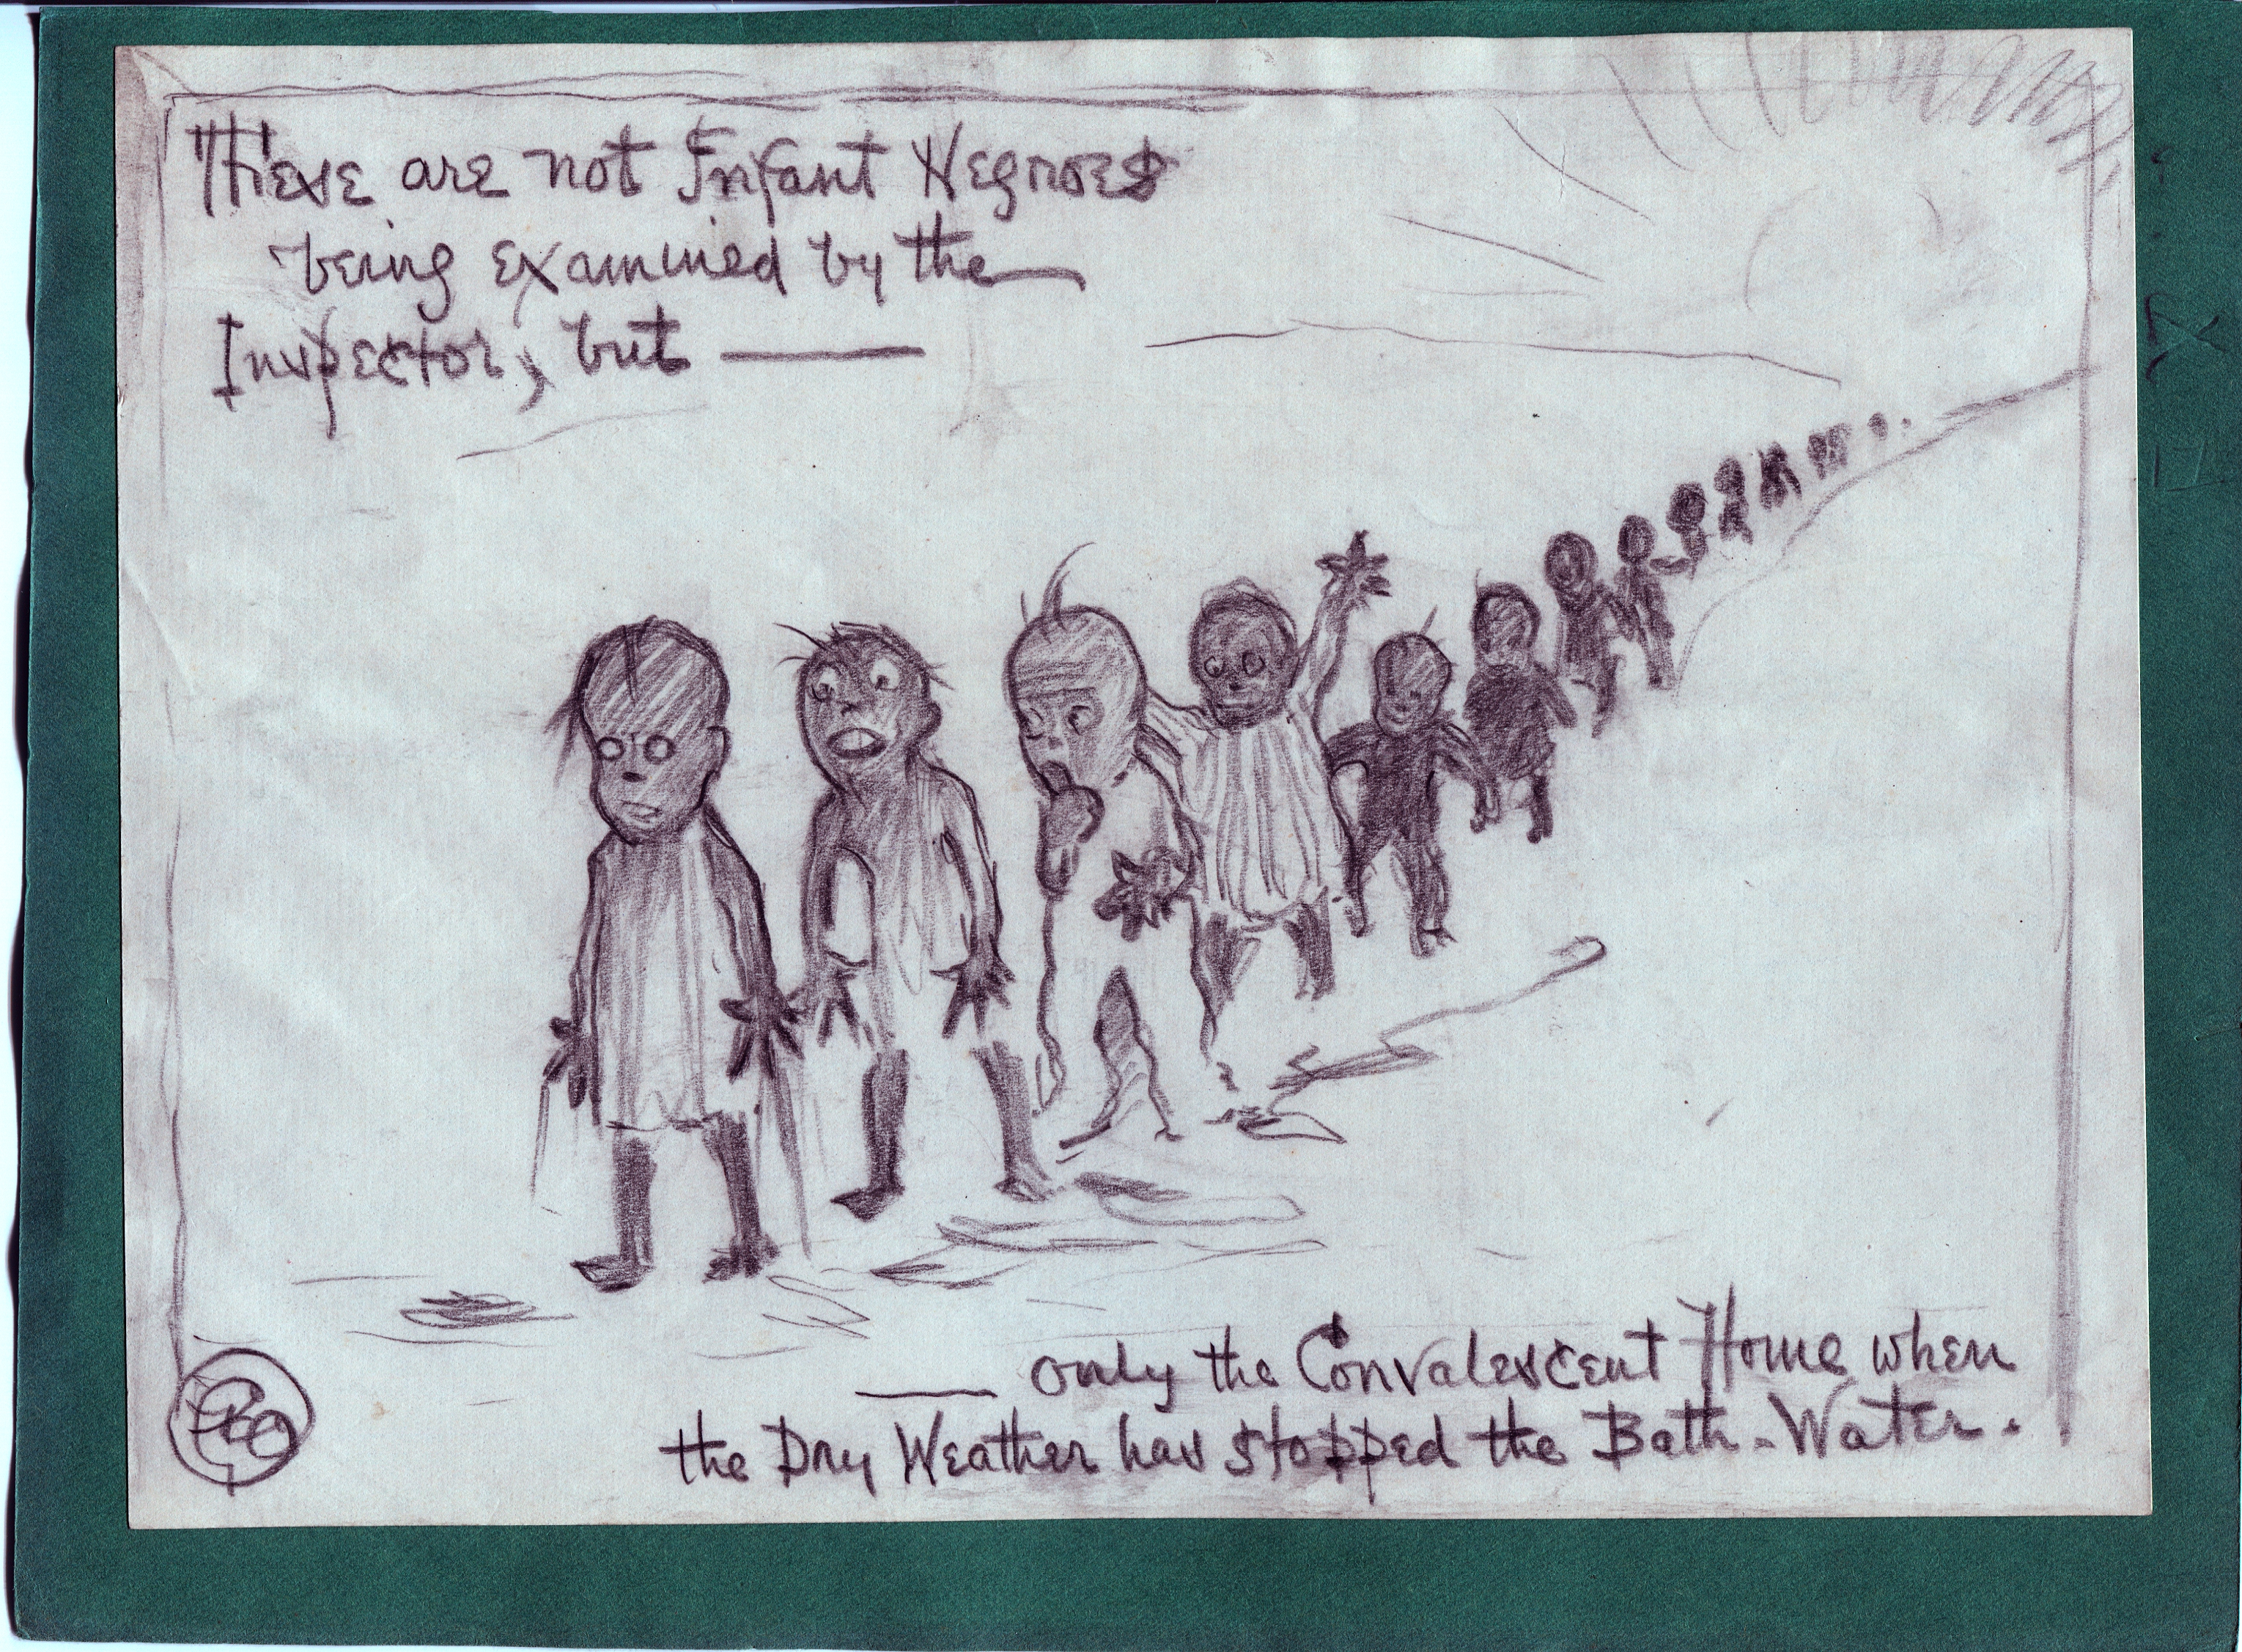 These are not Infant Negroes
being examined by the
Inspector, but ——
—— only the Convalescent Home when
the Dry Weather has stopped the Bath-Water.